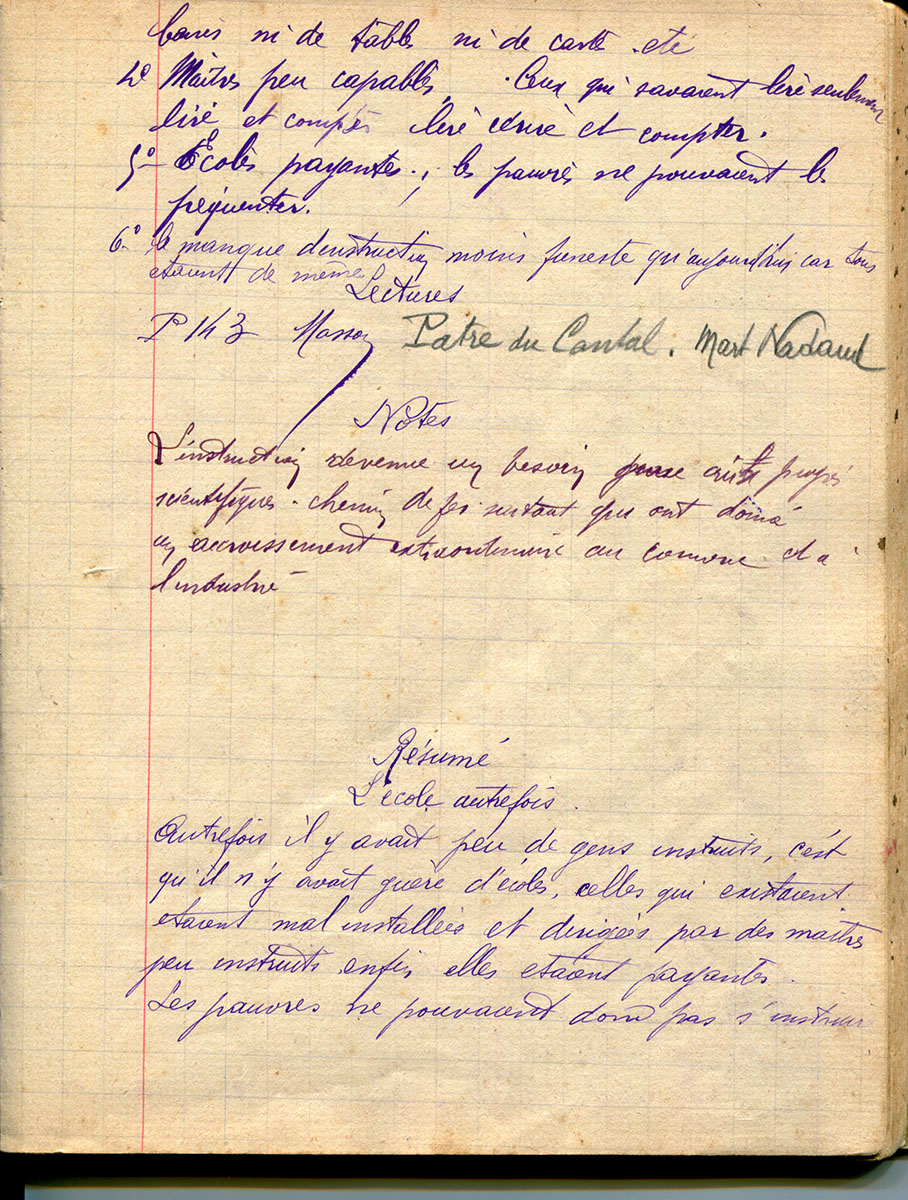 bancs ni de tables ni de carte etc
4º Maîtres peu capables, . Ceux qui savaient lire seulement
lire et compter lire écrire et compter.
5º Ecoles payantes.; les pauvres ne pouvaient les
fréquenter.
6º le manque d'instruction moins funeste qu'aujourd'hui car tous
etaient de meme
Lectures
P 143 Masson Patre du Cantal. Mart Nadaud
Notes
L'instruction devenue un besoin aux progrès
scientifiques - chemin de fer surtout qui ont donné
un accroissement extraordinaire au comerce et à
l'industrie
Résumé
L'école autrefois.
Autrefois il y avait peu de gens instruits, c'est
qu'il n'y avait guère d'écoles, celles qui existaient
etaient mal installées et dirigées par des maitres
peu instruits enfin elles etaient payantes.
Les pauvres ne pouvaient donc pas s'instruire